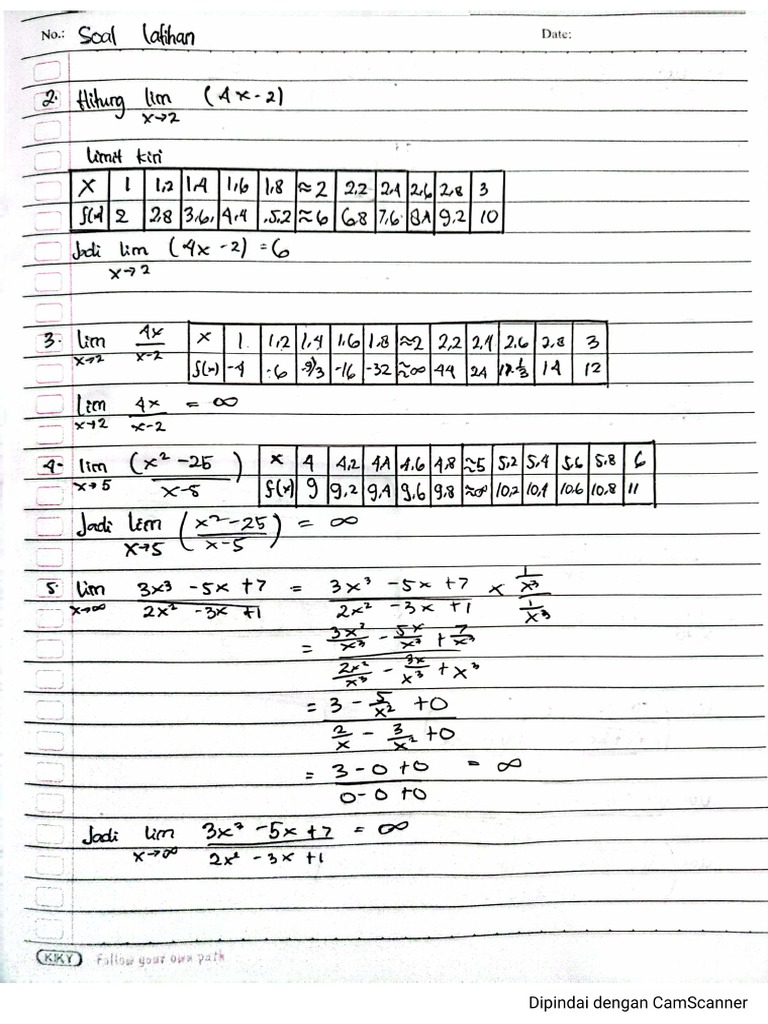 No.: Soal latihan Date:
2. Hitung lim x→2 (4x - 2)
limit kiri
x 1 1,2 1,4 1,6 1,8 ≈2 2,2 2,4 2,6 2,8 3
f(x) 2 2,8 3,6 4,4 5,2 ≈6 6,8 7,6 8,4 9,2 10
Jadi lim x→2 (4x - 2) = 6
3. lim x→2 4x/x-2
x 1 1,2 1,4 1,6 1,8 ≈2 2,2 2,4 2,6 2,8 3
f(x) -4 -6 -16 -32 ≈∞ 44 24 14 12
lim x→2 4x/x-2 = ∞
4. lim x→5 (x² - 25)/x-5
x 4 4,2 4,4 4,6 4,8 ≈5 5,2 5,4 5,6 5,8 6
f(x) 9 9,2 9,4 9,6 9,8 ≈∞ 10,2 10,4 10,6 10,8 11
Jadi lim x→5 (x² - 25/x-5) = ∞
5. lim x→∞ 3x³ - 5x + 7/2x² - 3x + 1 = 3x³ - 5x + 7/2x² - 3x + 1 × 1/x³/1/x³
= 3x³/x³ - 5x/x³ + 7/x³/2x²/x³ - 3x/x³ + x³
= 3 - 5/x² + 0/2/x - 3/x² + 0
= 3 - 0 + 0/0 - 0 + 0 = ∞
Jadi lim x→∞ 3x³ - 5x + 7/2x² - 3x + 1 = ∞
KIKY Follow your own path
Dipindai dengan CamScanner